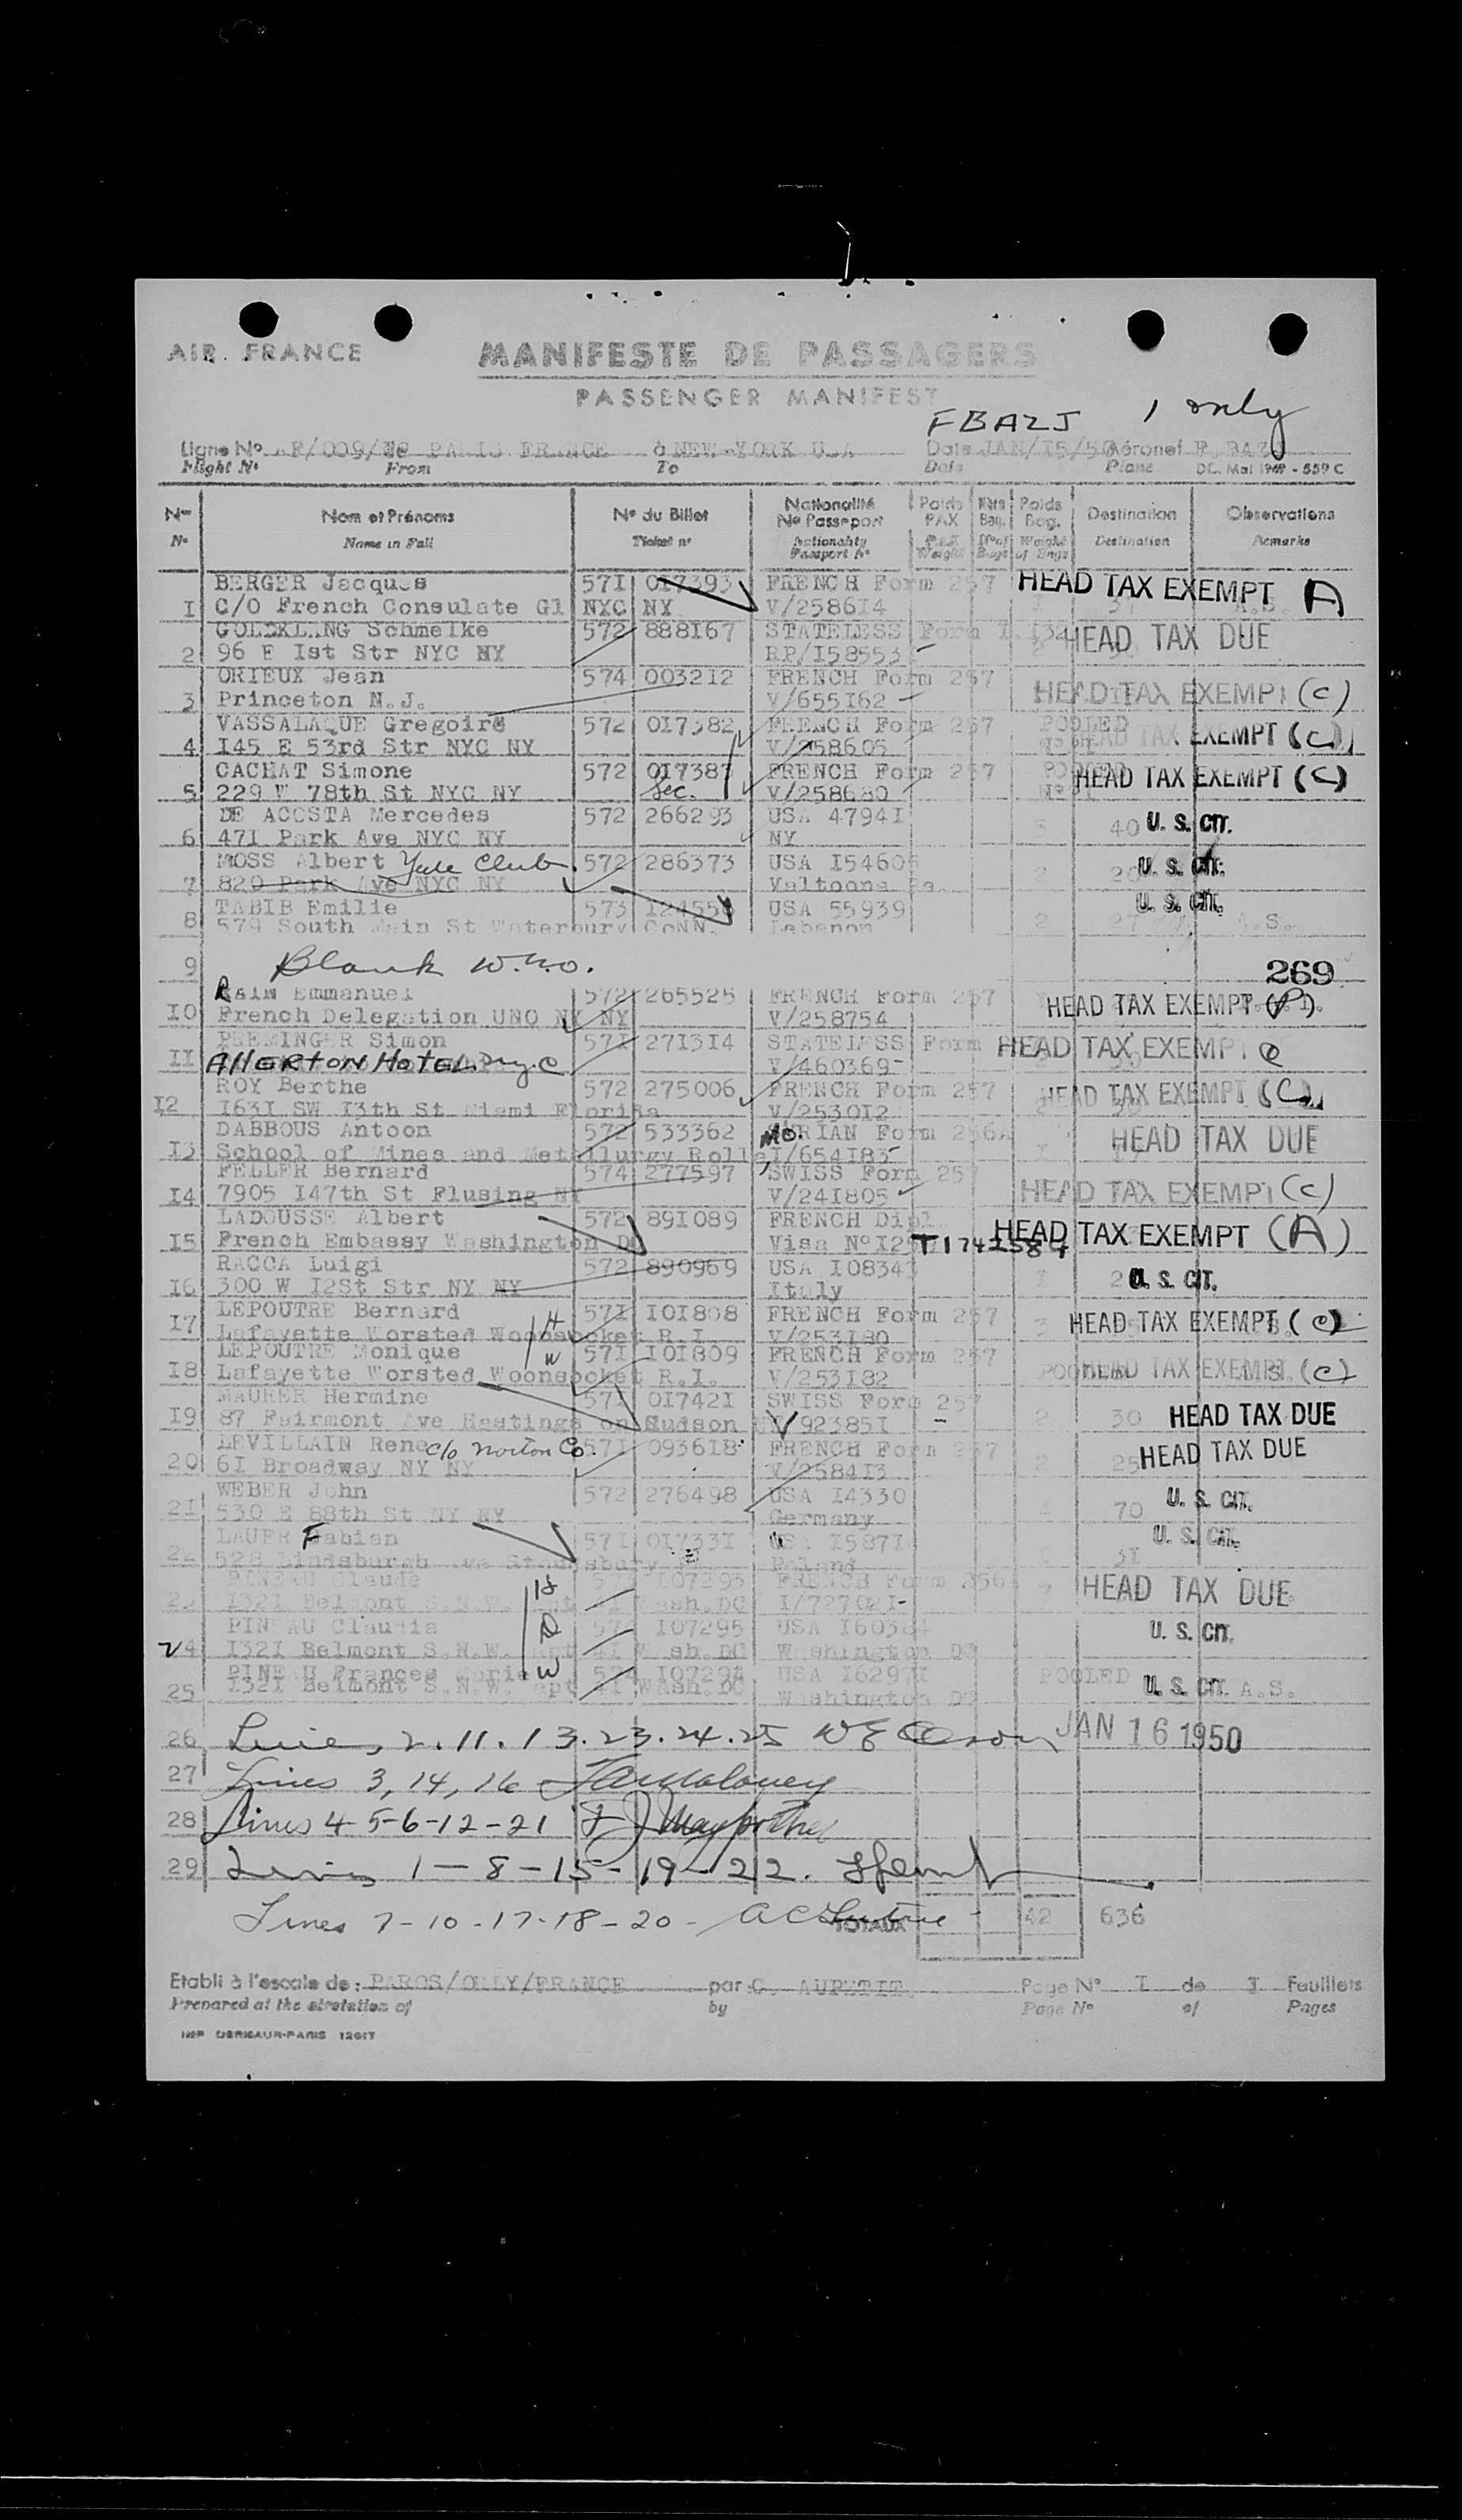 AIR FRANCE
MANIFESTE DE PASSAGERS
PASSENGER MANIFEST
FBAZJ 1 only
Ligne No AF/009/ De PARIS FRANCE à NEW-YORK U.S.A Date JAN/I5/50 Aéronef F. BAZJ
Flight No From To Date Plane DC. Mai 1949 - 559 C
Nos Nom et Prénoms No du Billet Nationalité No Passeport Poids PAX Nbre Bag. Poids Bag. Destination Observations
No Name in Full Ticket no Nationality Passport No PAX Weight No of Bags Weight of Bags Destination Remarks
BERGER Jacques 57I 017393 FRENCH Form 257 HEAD TAX EXEMPT A
I C/O French Consulate Gl NYC NY V/2586I4
GOLDKLANG Schmelke 572 888I67 STATELESS Form I I32 HEAD TAX DUE
2 96 E Ist Str NYC NY RP/I58553
ORIEUX Jean 574 003212 FRENCH Form 257 HEAD TAX EXEMPT (C)
3 Princeton N.J. V/655I62
VASSALAQUE Gregoire 572 017382 FRENCH Form 257 POOLED
4 I45 E 53rd Str NYC NY V/258605 HEAD TAX EXEMPT (C)
CACHAT Simone 572 017383 FRENCH Form 257 HEAD TAX EXEMPT (C)
5 229 W 78th St NYC NY Sec. V/258680
DE ACOSTA Mercedes 572 266293 USA 4794I 3 40 U. S. CIT.
6 47I Park Ave NYC NY NY
MOSS Albert Yale Club 572 286373 USA I54605 2 20 U. S. CIT.
7 820 Park Ave NYC NY Valtoona Pa.
TABIB Emilie 573 I24556 USA 55939 U. S. CIT.
8 579 South Main St Waterbury CoNN. Lebanon 2 27 A.S.
9 Blank W.E.O.
269
RAIN Emmanuel 572 265525 FRENCH Form 257 HEAD TAX EXEMPT
IO French Delegation UNO NY NY V/258754
Simon 57I 27I3I4 STATELESS Form HEAD TAX EXEMPT C
II AllERTON HOTEL N.Y.C V/460369
ROY Berthe 572 275006 FRENCH Form 257 HEAD TAX EXEMPT (C)
I2 I63I SW I3th St Miami Florida V/2530I2
DABBOUS Antoon 572 533362 SYRIAN Form 256A HEAD TAX DUE
I3 School of Mines and Metallurgy Rolla, Mo. I/654I83
FELLER Bernard 574 277597 SWISS Form 257 HEAD TAX EXEMPT (C)
I4 7905 I47th St Flusing NY V/24I805
LADOUSSE Albert 572 89I089 FRENCH Dipl. HEAD TAX EXEMPT (A)
I5 French Embassy Washington DC Visa No
RACCA Luigi 572 890969 USA I08343 U. S. CIT.
I6 300 W I2St Str NY NY Italy
LEPOUTRE Bernard H 57I I0I808 FRENCH Form 257 HEAD TAX EXEMPT (C)
I7 Lafayette Worsted Woonsocket R.I V/253I80
LEPOUTRE Monique W 57I I0I809 FRENCH Form 257 HEAD TAX EXEMPT (C)
I8 Lafayette Worsted Woonsocket R.I. V/253I82 POOLED
MAURER Hermine 57I 01742I SWISS Form 257
I9 87 Fairmont Ave Hastings on Hudson NY V 92385I 2 30 HEAD TAX DUE
LEVILLAIN Rene c/o Norton Co. 57I 0936I8 FRENCH Form 257 HEAD TAX DUE
20 6I Broadway NY NY V/2584I3 2 25
WEBER John 572 276498 USA I4330 U. S. CIT.
2I 530 E 88th St NY NY Germany 4 70
LAUER Fabian 57I 01733I USA I587I U. S. CIT.
22 528 Lindsburgh Ave Poland 3I
PINEAU Claude H 57 I07293 FRENCH Form 256 HEAD TAX DUE
23 I32I Belmont S.N.W. Apt 4I Wash.DC I/72702I
PINEAU Claudia D 57 I07295 USA U. S. CIT.
24 I32I Belmont S.N.W. Apt 4I Wash.DC Washington DC
PINEAU Frances Marie W 57 I07294 USA I6297I POOLED U. S. CIT. A.S.
25 I32I Belmont S.N.W. Apt 4I Wash.DC Washington DC
26 Lines 2.11.13.23.24.25 JAN 16 1950
27 Lines 3, 14, 16
28 Lines 4-5-6-12-21
29 Lines 1-8-15-19-22.
Lines 7-10-17-18-20 TOTAUX 42 636
Etabli à l'escale de: PAROS/ORLY/FRANCE par C. AUPETIT. Page No I de I Feuillets
Prepared at the airstation of by Page No of Pages